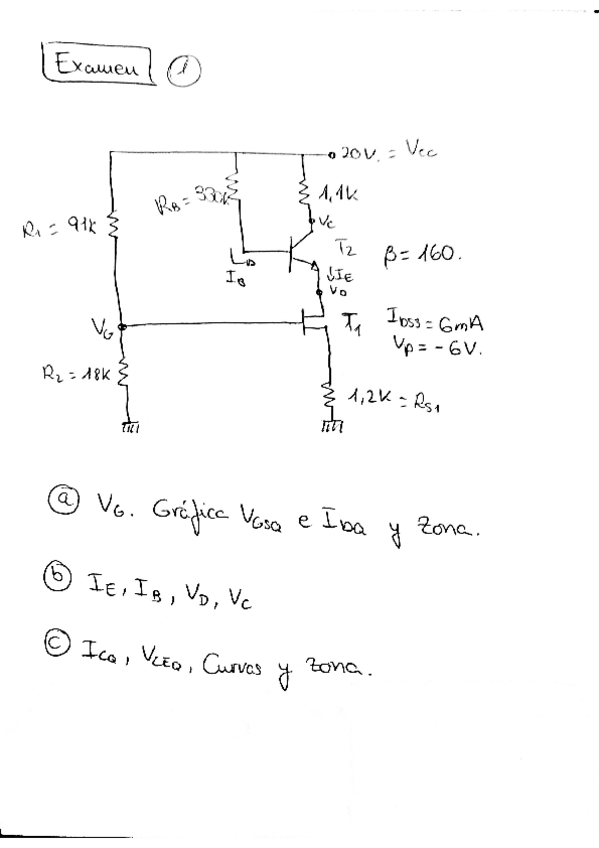 Examen 1
20V. = Vcc
RB = 330K
1,1K
R1 = 91K
VC
T2
β = 160.
IB
↓IE
VD
VG
T1
IDSS = 6mA
VP = -6V.
R2 = 18K
1,2K = RS1
a VG. Gráfica VGSQ e IDQ y zona.
b IE, IB, VD, VC
c ICQ, VCEQ, Curvas y zona.